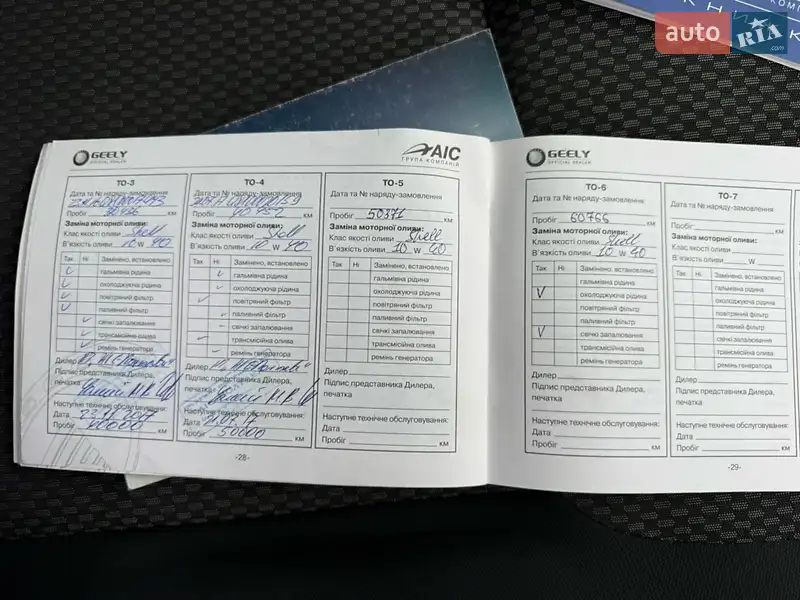 auto RIA .com
GEELY
OFFICIAL DEALER
AIC
ГРУПА КОМПАНІЙ
ТО-3
Дата та № наряду-замовлення
Пробіг км
Заміна моторної оливи:
Клас якості оливи Shell
В'язкість оливи 10 W 40
Так Ні Замінено, встановлено
гальмівна рідина
охолоджуюча рідина
повітряний фільтр
паливний фільтр
свічки запалювання
трансмісійна олива
ремінь генератора
Дилер
Підпис представника Дилера,
печатка
Наступне технічне обслуговування:
Дата
Пробіг 40000 км
ТО-4
Дата та № наряду-замовлення
Пробіг 40952 км
Заміна моторної оливи:
Клас якості оливи Shell
В'язкість оливи 10 W 40
Так Ні Замінено, встановлено
гальмівна рідина
охолоджуюча рідина
повітряний фільтр
паливний фільтр
свічки запалювання
трансмісійна олива
ремінь генератора
Дилер
Підпис представника Дилера,
печатка
Наступне технічне обслуговування:
Дата
Пробіг 50000 км
ТО-5
Дата та № наряду-замовлення
Пробіг 50371 км
Заміна моторної оливи:
Клас якості оливи Shell
В'язкість оливи 10 W 40
Так Ні Замінено, встановлено
гальмівна рідина
охолоджуюча рідина
повітряний фільтр
паливний фільтр
свічки запалювання
трансмісійна олива
ремінь генератора
Дилер
Підпис представника Дилера,
печатка
Наступне технічне обслуговування:
Дата
Пробіг км
-28-
GEELY
OFFICIAL DEALER
ТО-6
Дата та № наряду-замовлення
Пробіг 60766 км
Заміна моторної оливи:
Клас якості оливи Shell
В'язкість оливи 10 W 40
Так Ні Замінено, встановлено
гальмівна рідина
охолоджуюча рідина
повітряний фільтр
паливний фільтр
свічки запалювання
трансмісійна олива
ремінь генератора
Дилер
Підпис представника Дилера,
печатка
Наступне технічне обслуговування:
Дата
Пробіг км
ТО-7
Дата та № наряду-замовлення
Пробіг км
Заміна моторної оливи:
Клас якості оливи
В'язкість оливи W
Так Ні Замінено, встановлено
гальмівна рідина
охолоджуюча рідина
повітряний фільтр
паливний фільтр
свічки запалювання
трансмісійна олива
ремінь генератора
Дилер
Підпис представника Дилера,
печатка
Наступне технічне обслуговування:
Дата
Пробіг км
-29-